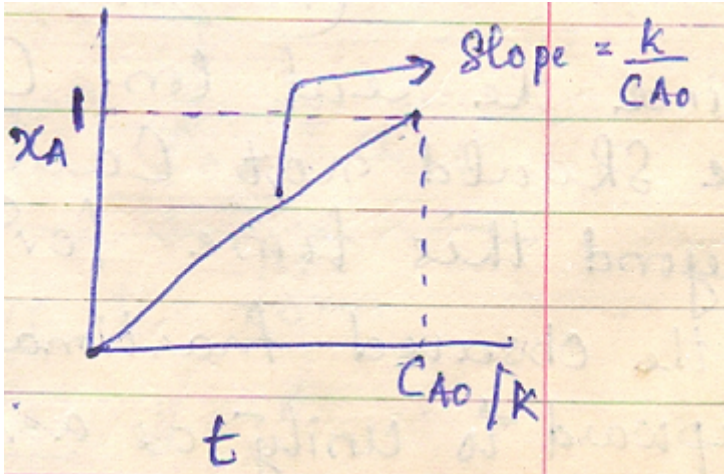 Slope = k/CA0
1
xA
CA0/k
t